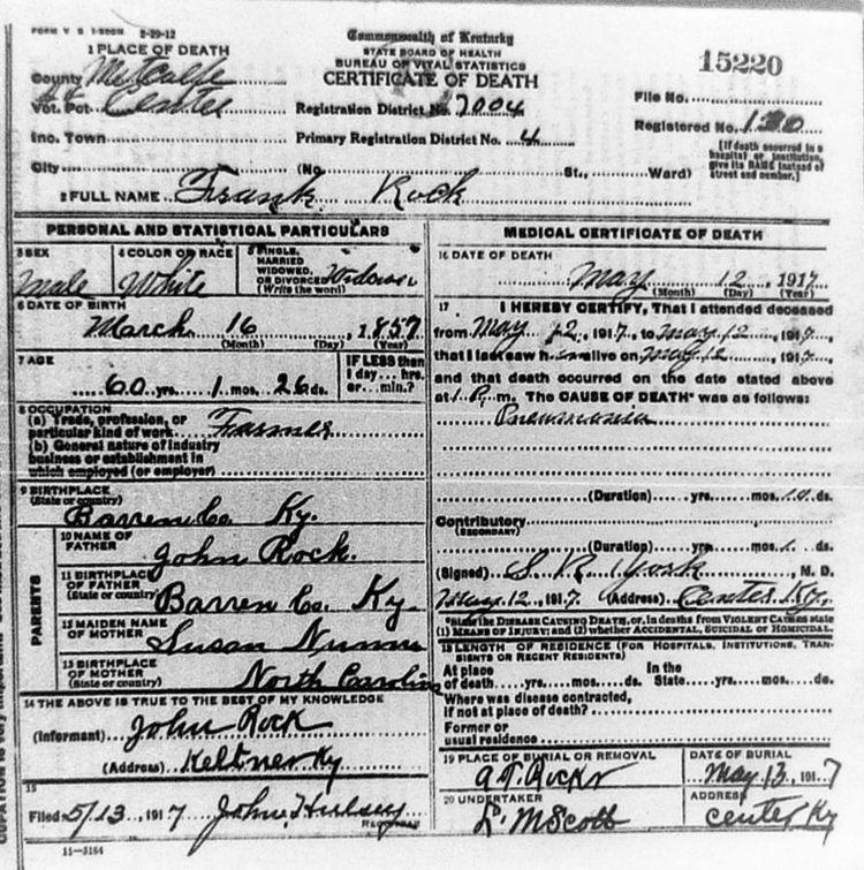 FORM V S 1-500M 2-29-12
Commonwealth of Kentucky
STATE BOARD OF HEALTH
BUREAU OF VITAL STATISTICS
CERTIFICATE OF DEATH
15220
1 PLACE OF DEATH
County Metcalfe
Vot. Pct. Center
Inc. Town
City (No. St., Ward)
Registration District No. 7004
Primary Registration District No. 4
File No.
Registered No. 130
[If death occurred in a hospital or institution, give its NAME instead of street and number.]
2 FULL NAME Frank Rock
PERSONAL AND STATISTICAL PARTICULARS
3 SEX
Male
4 COLOR OR RACE
White
5 SINGLE,
MARRIED
WIDOWED,
OR DIVORCED
(Write the word)
6 DATE OF BIRTH
March 16, 1857
(Month) (Day) (Year)
7 AGE
60 yrs. 1 mos. 26 ds.
IF LESS than
1 day... hrs.
or... min.?
8 OCCUPATION
(a) Trade, profession, or
particular kind of work Farmer
(b) General nature of industry
business or establishment in
which employed (or employer)
9 BIRTHPLACE
(State or country)
Barren Co. Ky.
PARENTS
10 NAME OF
FATHER
John Rock.
11 BIRTHPLACE
OF FATHER
(State or country)
Barren Co. Ky.
12 MAIDEN NAME
OF MOTHER
Susan Nunn
13 BIRTHPLACE
OF MOTHER
(State or country)
North Carolina
14 THE ABOVE IS TRUE TO THE BEST OF MY KNOWLEDGE
(Informant) John Rock
(Address) Keltner Ky
15
Filed 5/13, 1917 John Hulsey
11-3164
MEDICAL CERTIFICATE OF DEATH
16 DATE OF DEATH
May 12, 1917
(Month) (Day) (Year)
17 I HEREBY CERTIFY, That I attended deceased
from May 12, 1917, to May 12, 1917,
that I last saw him alive on May 12, 1917,
and that death occurred on the date stated above
at 1 P. m. The CAUSE OF DEATH* was as follows:
Pneumonia
(Duration) yrs. mos. 10 ds.
Contributory
(SECONDARY)
(Duration) yrs. mos. ds.
(Signed) S. R. York, M. D.
May 12, 1917 (Address) Center Ky.
*State the DISEASE CAUSING DEATH, or, in deaths from VIOLENT CAUSES state
(1) MEANS OF INJURY; and (2) whether ACCIDENTAL, SUICIDAL or HOMICIDAL.
18 LENGTH OF RESIDENCE (FOR HOSPITALS, INSTITUTIONS, TRANSIENTS OR RECENT RESIDENTS)
At place In the
of death yrs. mos. ds. State yrs. mos. ds.
Where was disease contracted,
if not at place of death?
Former or
usual residence
19 PLACE OF BURIAL OR REMOVAL
DATE OF BURIAL
May 13, 1917
20 UNDERTAKER
L. M Scott
ADDRESS
Center Ky